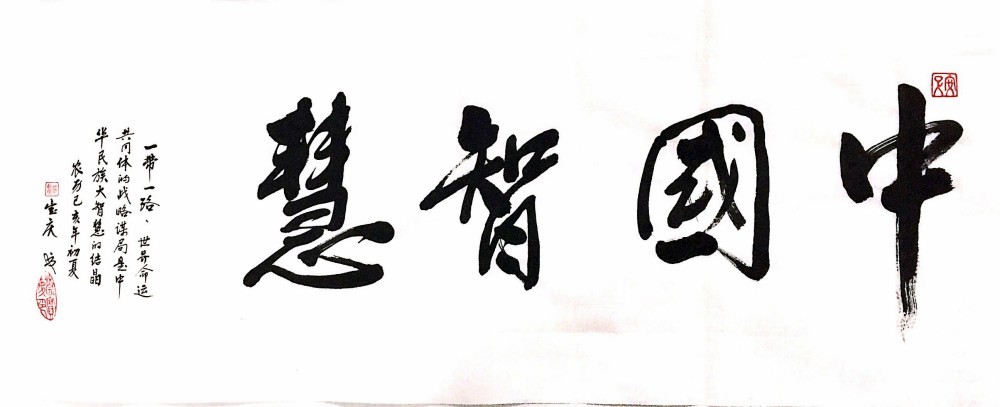 中國智慧
一带一路、世界命运
共同体的战略谋局是中
华民族大智慧的结晶
农历己亥年初夏